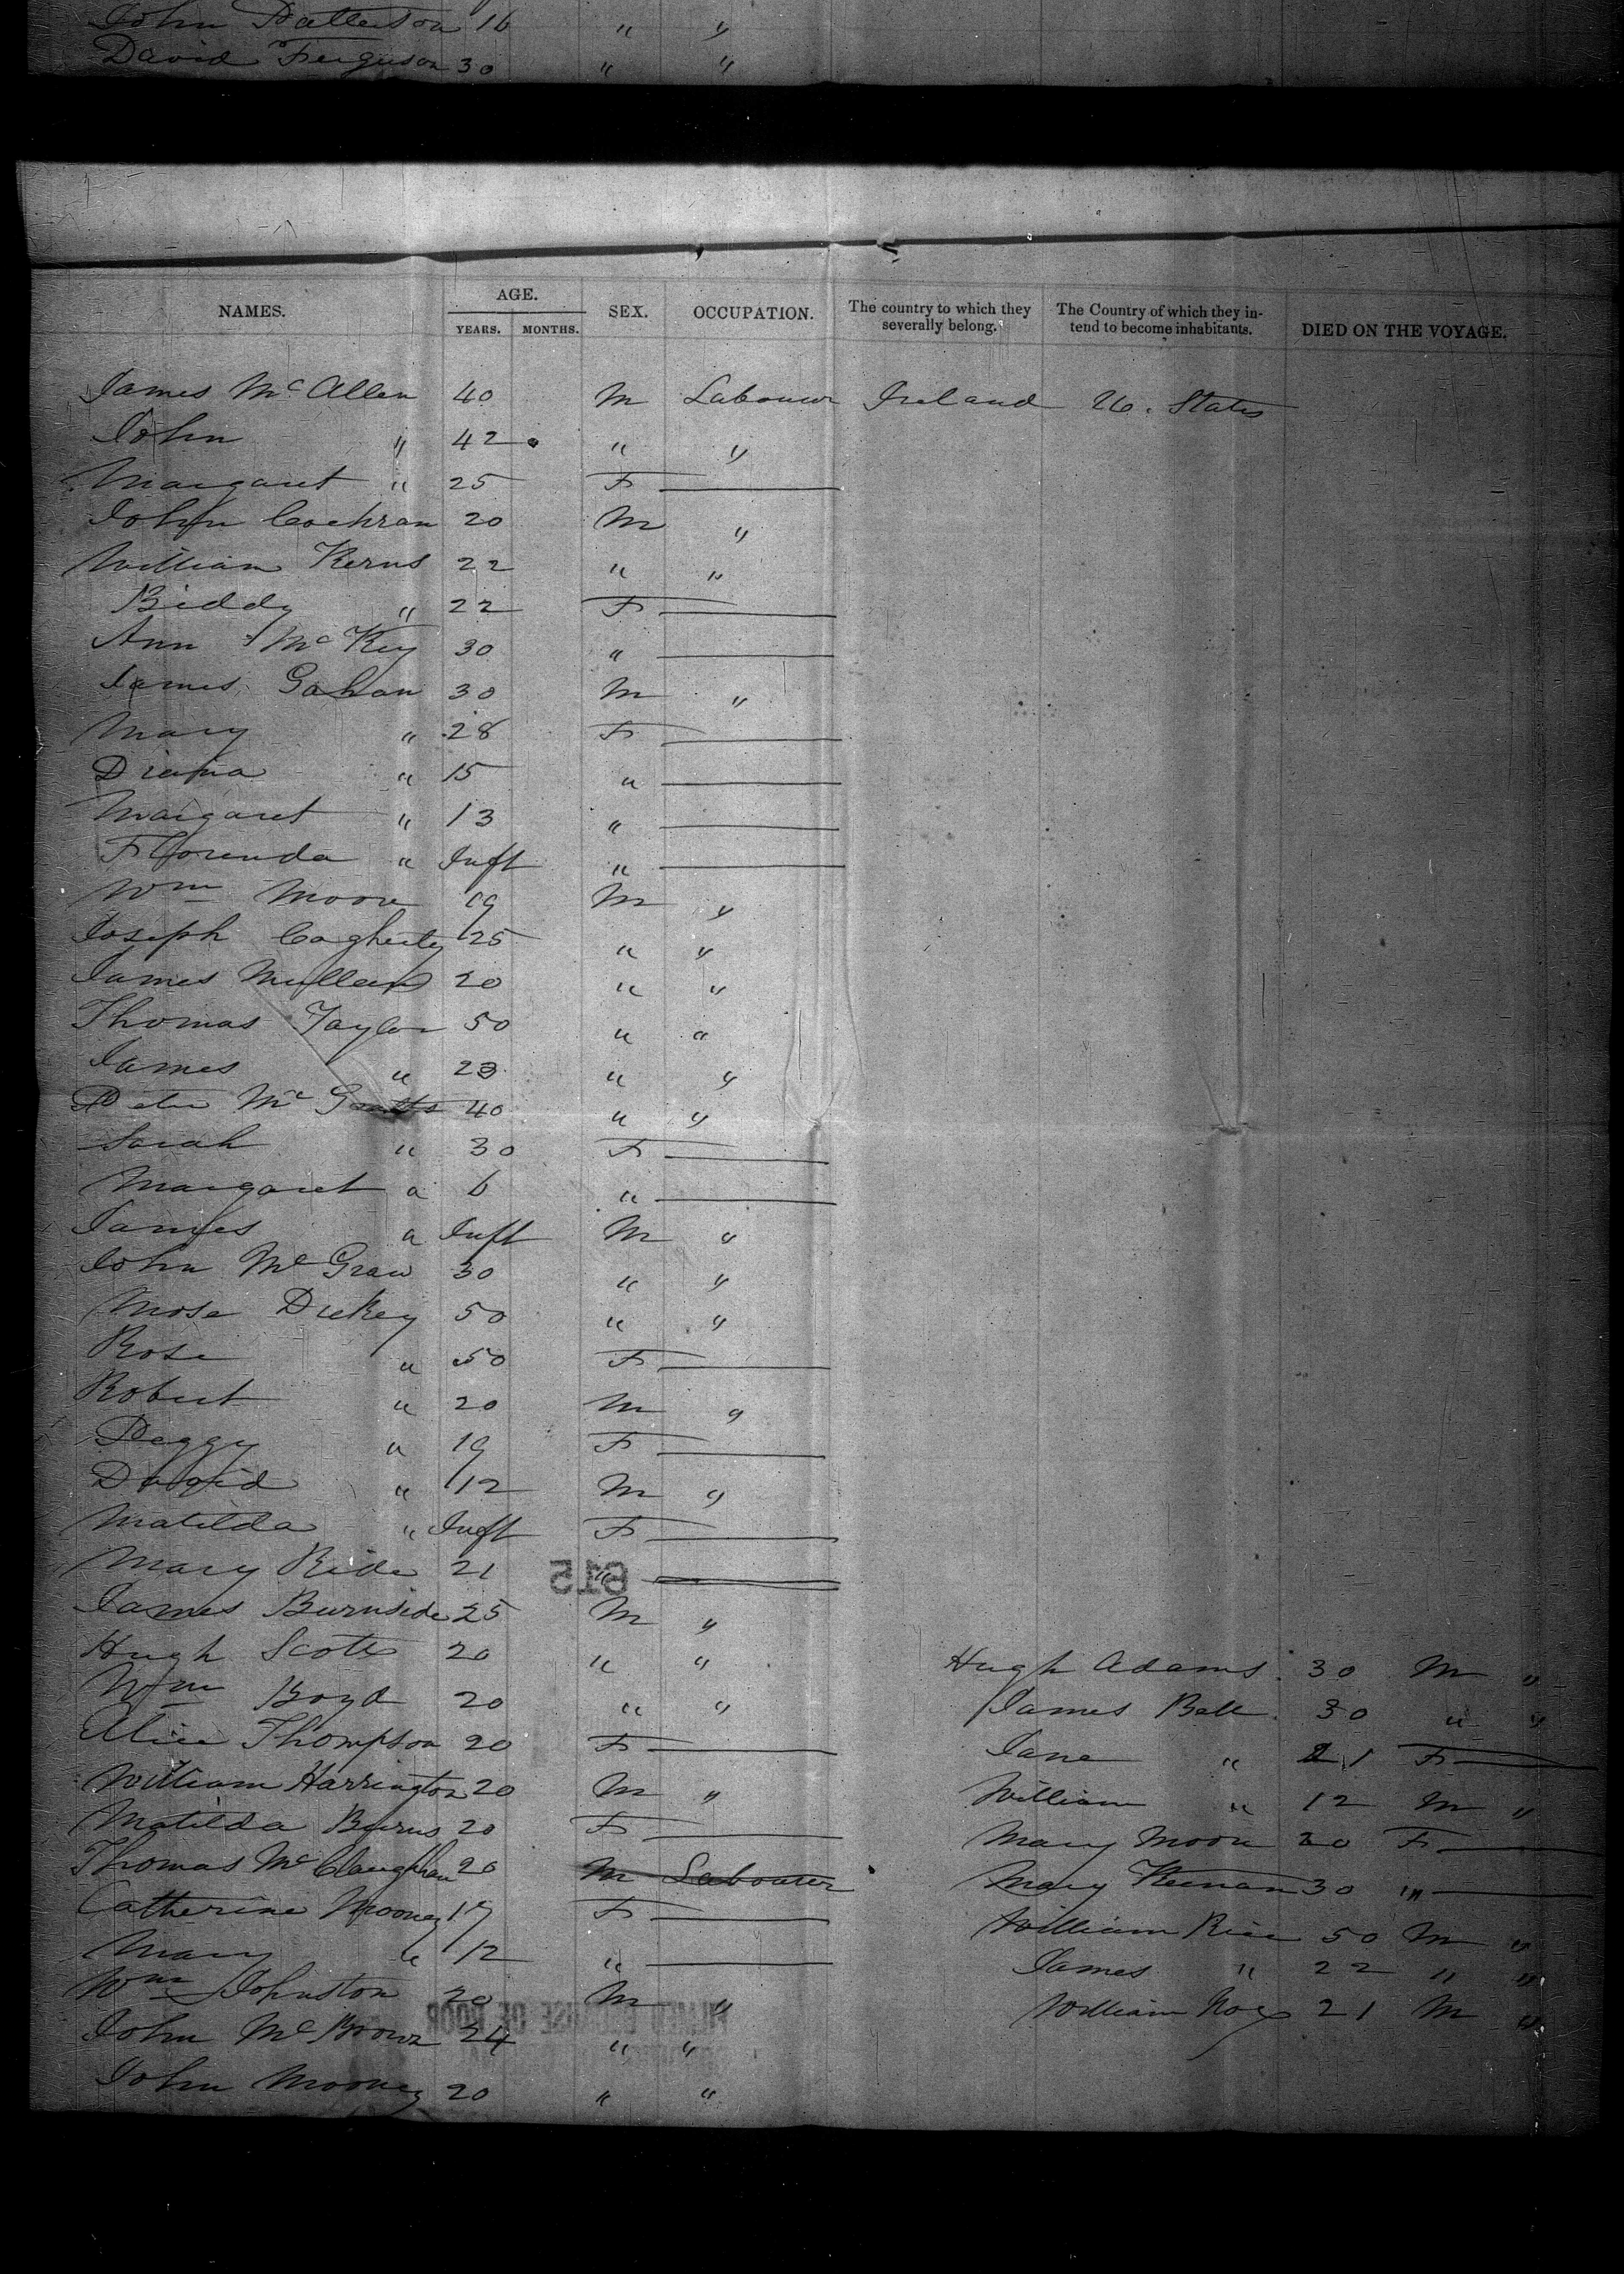 John Patterson 16 " "
David Ferguson 30 " "
NAMES. AGE. YEARS. MONTHS. SEX. OCCUPATION. The country to which they severally belong. The Country of which they intend to become inhabitants. DIED ON THE VOYAGE.
James McAllen 40 M Labourer Ireland U. States
John " 42 " "
Margaret " 25 F
John Cochran 20 M "
William Kerns 22 " "
Biddy " 22 F
Ann McKey 30 "
James Gahan 30 M "
Mary " 28 F
Diana " 15 "
Margaret " 13 "
Florenda " Inft "
Wm Moore 19 M "
Joseph 25 " "
James Mullens 20 " "
Thomas Taylor 50 " "
James " 23 " "
Peter Mc 40 " "
Sarah " 30 F
Margaret " 6 "
James " Inft M "
John McGraw 30 " "
Mose Dickey 50 " "
Rose " 50 F
Robert " 20 M "
Peggy " 19 F
David " 12 M "
Matilda " Inft F
Mary Ride 21 "
615
James Burnside 25 M "
Hugh Scott 20 " "
Wm Boyd 20 " "
Alice Thompson 20 F
William Harrington 20 M "
Matilda Burns 20 F
Thomas McClaughan 20 M Labourer
Catherine Mooney 17 F
Mary " 12 "
Wm Johnston 20 M "
John McBrown 24 " "
John Mooney 20 " "
Hugh Adams 30 M "
James Bell 30 " "
Jane " 21 F
William " 12 M "
Mary Moore 20 F
Mary Keenan 30 "
William Rice 50 M "
James " 22 " "
William Roy 21 M "